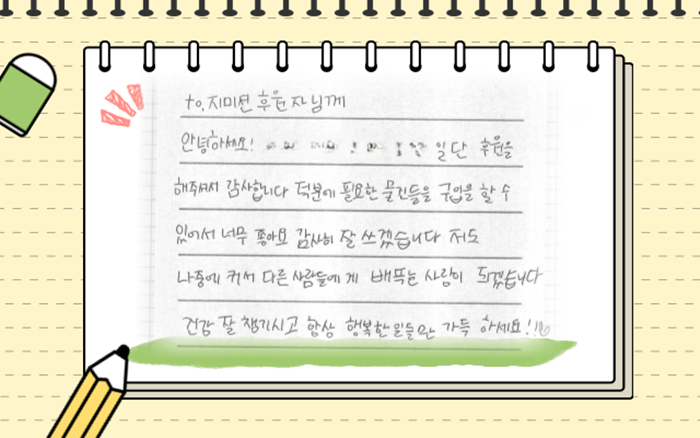 to. 지미션 후원자님께
안녕하세요! 일단 후원을
해주셔서 감사합니다 덕분에 필요한 물건들을 구입을 할 수
있어서 너무 좋아요 감사히 잘 쓰겠습니다 저도
나중에 커서 다른 사람들에게 배푸는 사람이 되겠습니다
건강 잘 챙기시고 항상 행복한 일들만 가득 하세요!!